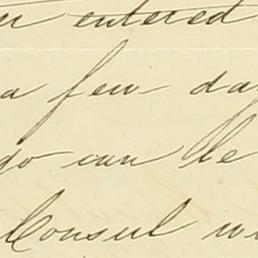 entered
a few da
go can be
Consul wi